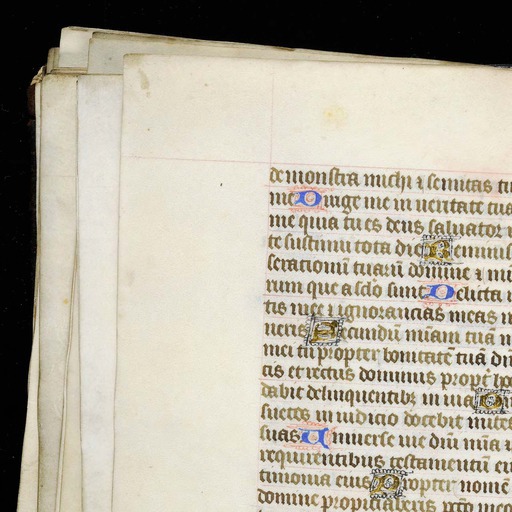 demonstra michi ⁊ semitas tu
me Dirige me in ueritate tua
me quia tu es deus saluator
te sustinui tota die Reminis
serationū tuarū domine ⁊ mi
rum que a sclo sunt Delicta i
tis mee ⁊ ignorancias meas
neris Secundū mīam tuā
mei tu propter bonitatē tuā dn
cis et rectus dominus propt̄ ho
dabit delinquentibꝫ in uia Di
suetos in iudicio docebit mites
suas Uniuerse uie dn̄i mīa
requirentibus testamentū ei
timonia eius Propter nomē
domine propitiaberis pctō meo